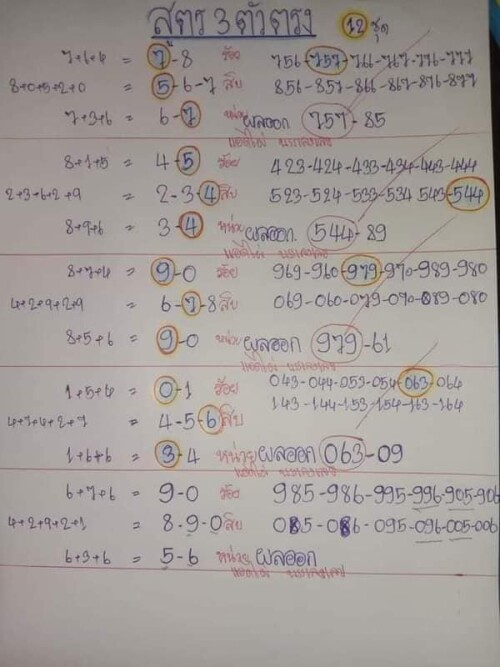 สูตร 3 ตัวตรง 12 ชุด
7+6+4 = 7-8 ร้อย 756-757-766-767-776-777
8+0+5+2+0 = 5-6-7 สิบ 856-857-866-867-876-877
7+3+6 = 6-7 หน่วย ผลออก 757-85
8+1+5 = 4-5 ร้อย 423-424-433-434-443-444
2+3+6+2+9 = 2-3-4 สิบ 523-524-533-534 543-544
8+9+6 = 3-4 หน่วย ผลออก 544-89
8+7+4 = 9-0 ร้อย 969-960-979-970-989-980
4+2+9+2+9 = 6-7-8 สิบ 069-060-079-070-089-080
8+5+6 = 9-0 หน่วย ผลออก 979-61
1+5+4 = 0-1 ร้อย 043-044-053-054-063-064
4+7+4+2+7 = 4-5-6 สิบ 143-144-153-154-163-164
1+6+6 = 3-4 หน่วย ผลออก 063-09
6+7+6 = 9-0 ร้อย 985-986-995-996-905-906
4+2+9+2+1 = 8-9-0 สิบ 085-086-095-096-005-006
6+3+6 = 5-6 หน่วย ผลออก